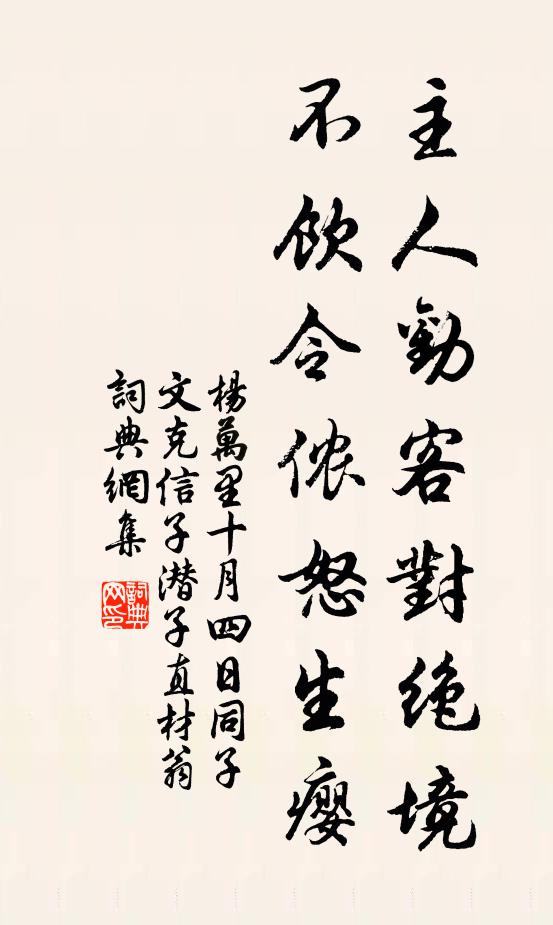 主人勸客對絶境
不飲令儂怒生癭
楊萬里十月四日同子
文克信子潜子直材翁
詞典網集
詞典网印